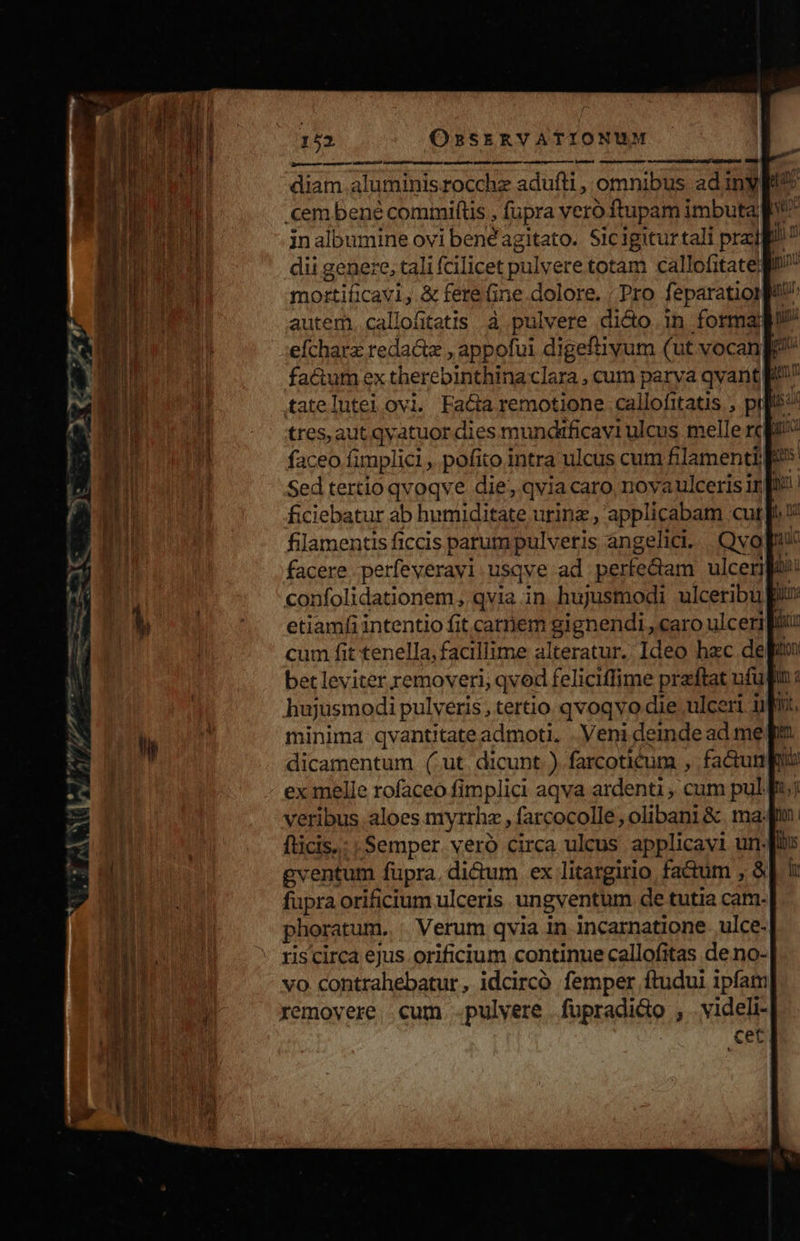 152 OBSERVATIONUM
diam aluminis rocchæ adufti, omnibus ad
cem bené commiftis, fupra verò ftupam imbuta
in albumine ovi bené agitato. Sic igitur tali
dii genere, tali fcilicet pulvere totam callofitate
mortificavi, & fere fine dolore. Pro
autem callofitatis à pulvere dicto in
efcharæ redactæ, appofui digeftivum (ut vocan
factum ex therebinthina clara, cum parva qvant
tate lutei ovi. Facta remotione callofitatis,
tres, aut qvatuor dies mundificavi ulcus melle
faceo fimplici, pofito intra ulcus cum
Sed tertio qvoqve die, qvia caro nova ulceris
ficiebatur ab humiditate urinæ, applicabam
filamentis ficcis parum pulveris angelici. Qvo
facere perfeveravi usqve ad perfectam
confolidationem, qvia in hujusmodi ulceribu
etiamfi intentio fit carnem gignendi, caro ulceri
cum fit tenella, facillime alteratur. Ideo hæc de
bet leviter removeri, qvod feliciffime præftat ufu
hujusmodi pulveris, tertio qvoqvo die ulceri
minima qvantitate admoti. Veni deinde ad me
dicamentum (ut dicunt) farcoticum, factum
ex melle rofaceo fimplici aqva ardenti, cum pul-
veribus aloes myrrhæ, farcocolle, olibani & ma-
fticis. Semper verò circa ulcus applicavi un-
gventum fupra dictum ex litargirio factum, &
fupra orificium ulceris ungventum de tutia cam-
phoratum. Verum qvia in incarnatione ulce-
ris circa ejus orificium continue callofitas de no-
vo contrahebatur, idcircò femper ftudui ipfam
removere cum pulvere fupradicto, videli-
cet